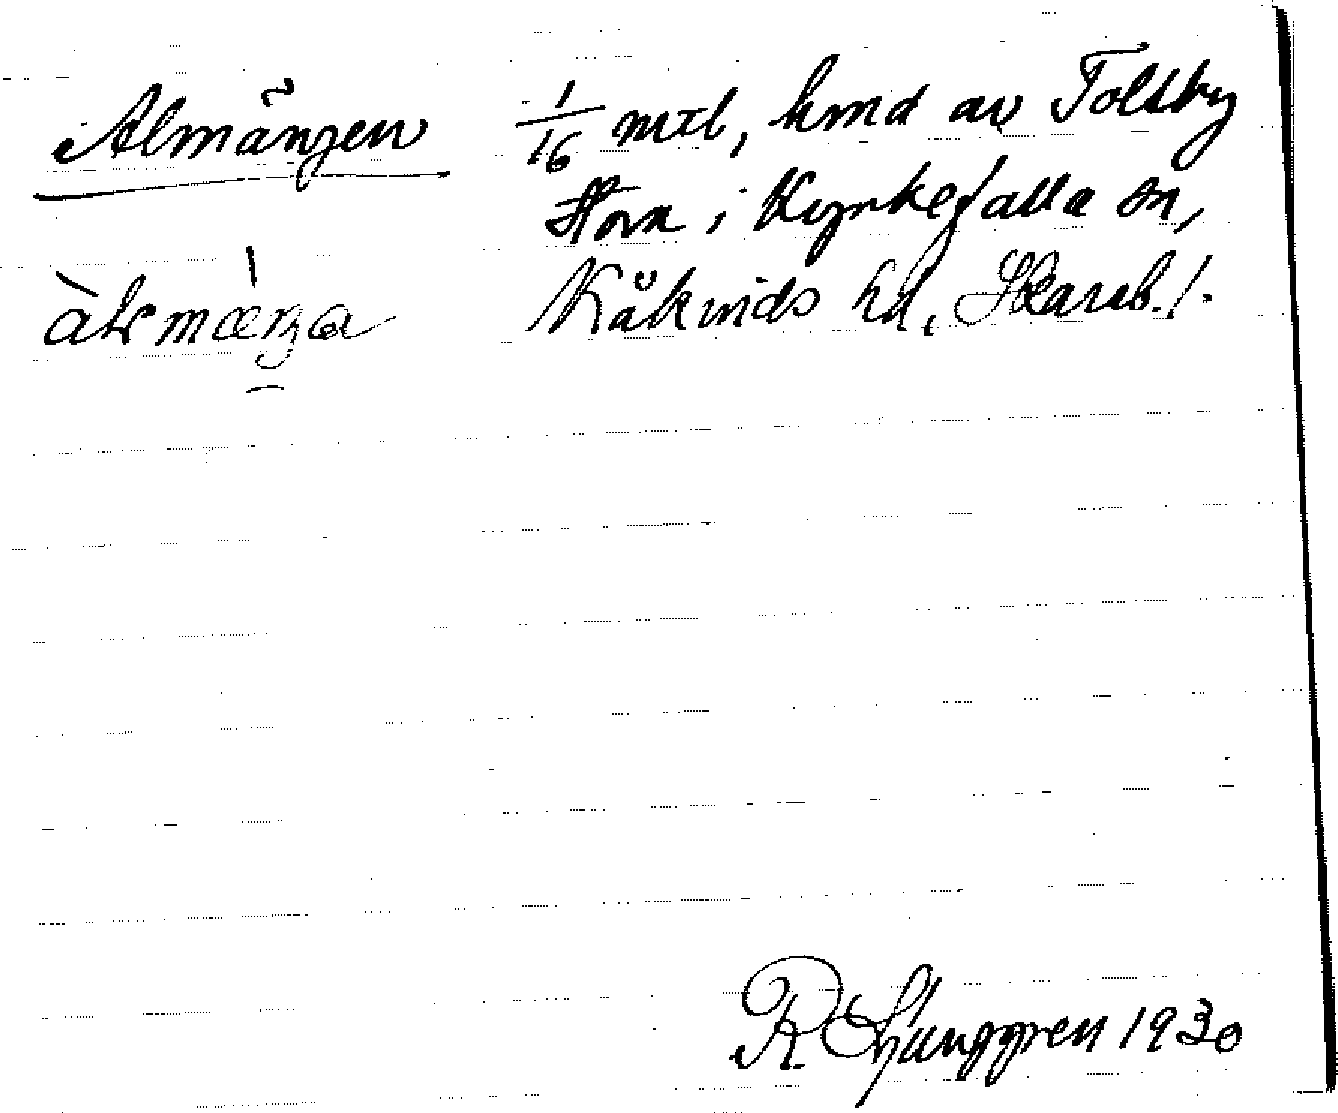 Almängen
1/16 mtl, hmd av Toltby
Stora i Kyrkefalla sn,
Kåkinds hd, Skarab. l.
R. Ljunggren 1930